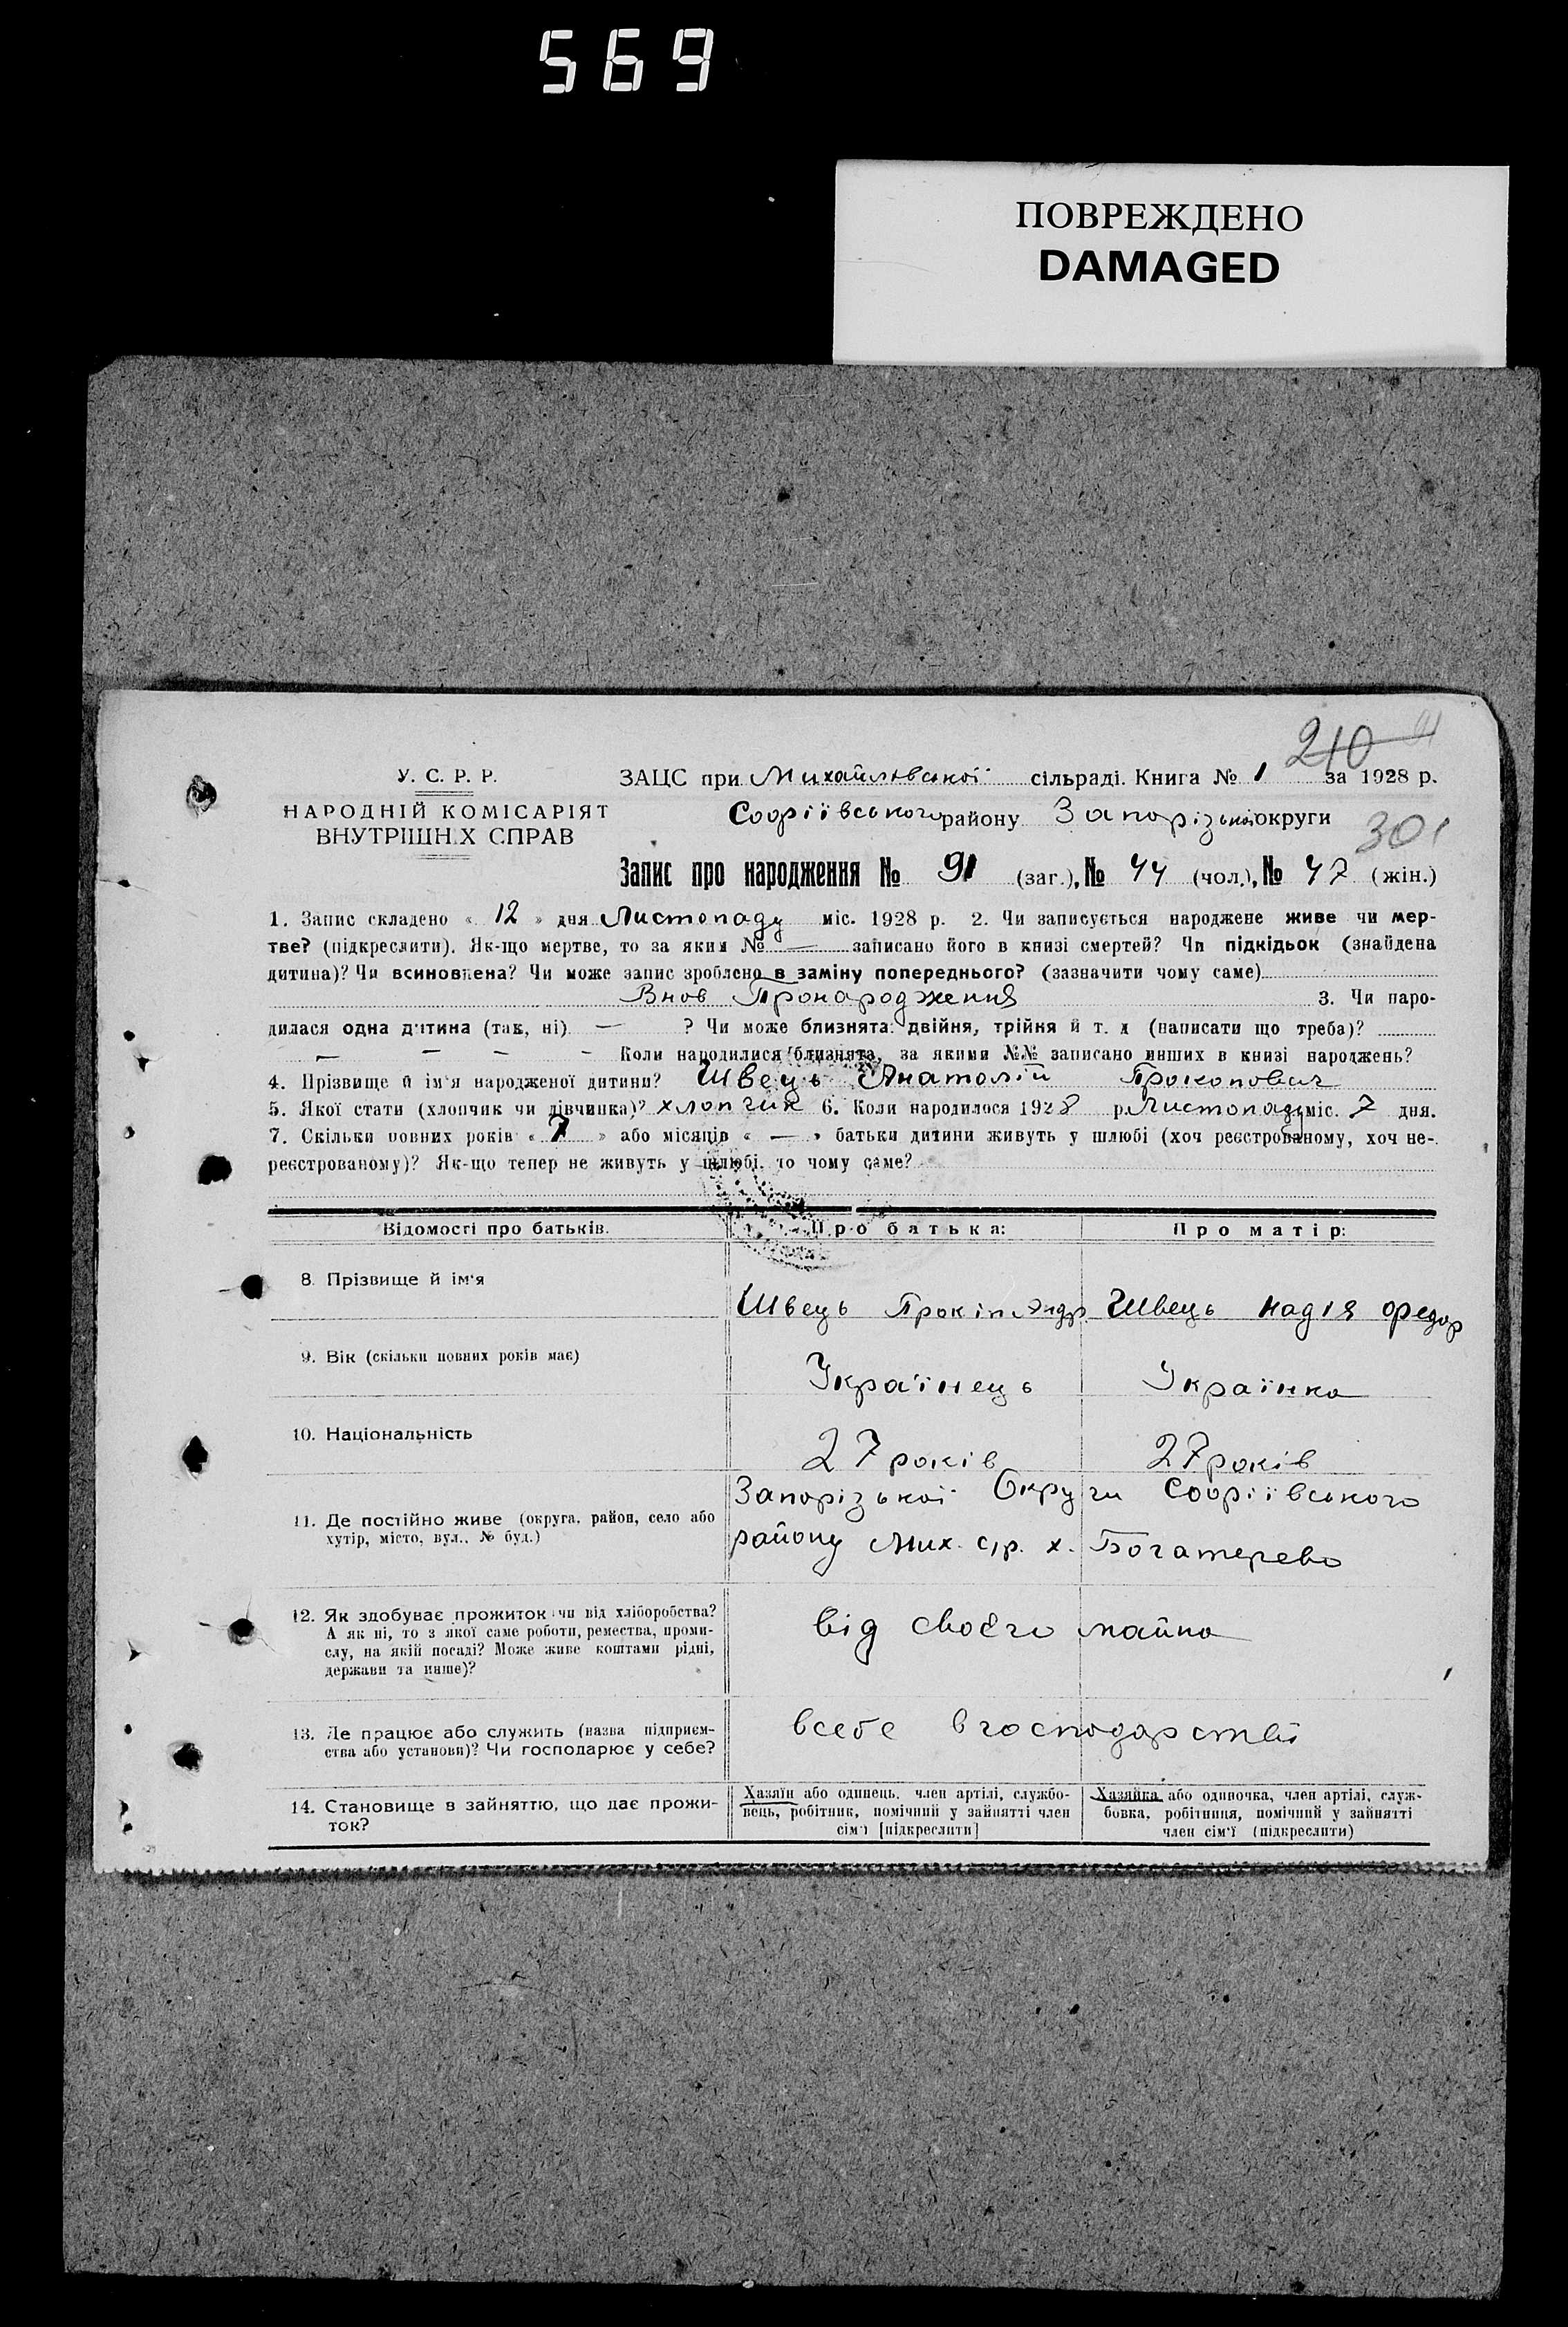 569
ПОВРЕЖДЕНО
DAMAGED
210
У. С. Р. Р.
НАРОДНІЙ КОМІСАРІЯТ
ВНУТРІШНіХ СПРАВ
ЗАЦС при Михайлівської сільраді. Книга № 1 за 1928 р.
Софіївського району Запорізької округи
301
Запис про народження № 91 (заг.), № 44 (чол.), № 47 (жін.)
1. Запис складено « 12 » дня Листопаду міс. 1928 р. 2. Чи записується народжене живе чи мер-
тве? (підкреслити). Як-що мертве, то за яким № — записано його в книзі смертей? Чи підкідьок (знайдена
дитина)? Чи всиновлена? Чи може запис зроблено в заміну попереднього? (зазначити чому саме)
Внов Пронародження 3. Чи наро-
дилася одна дитина (так, ні) — ? Чи може близнята: двійня, трійня й т. д (написати що треба)?
— — — — Коли народилися близнята, за якими №№ записано инших в книзі народжень?
4. Прізвище й ім'я народженої дитини? Швець Анатолій Прокопович
5. Якої стати (хлопчик чи дівчинка)? хлопчик 6. Коли народилося 1928 р. Листопаду міс. 7 дня.
7. Скільки повних років « 7 » або місяців « — » батьки дитини живуть у шлюбі (хоч реєстрованому, хоч не-
реєстрованому)? Як-що тепер не живуть у шлюбі, то чому саме?
Відомості про батьків. Про батька: Про матір:
8. Прізвище й ім'я
Швець Прокіп Андр Швець Надія Федор
9. Вік (скільки повних років має)
Українець Українка
10. Національність
27 років 27 років
Запорізької Округи Софіївського
11. Де постійно живе (округа, район, село або
хутір, місто, вул., № буд.)
району Мих. с/р. х. Богатерево
12. Як здобуває прожиток чи від хліборобства?
А як ні, то з якої саме роботи, ремества, проми-
слу, на якій посаді? Може живе коштами рідні,
держави та инше)?
від своєго майна
13. Де працює або служить (назва підприєм-
ства або установи)? Чи господарює у себе?
всебе вгосподарстві
14. Становище в зайняттю, що дає прожи-
ток?
Хазяїн або одинець, член артілі, службо-
вець, робітник, помічний у зайнятті член
сім'ї [підкреслити]
Хазяйка або одиночка, член артілі, служ-
бовка, робітниця, помічний у зайнятті
член сім'ї (підкреслити)